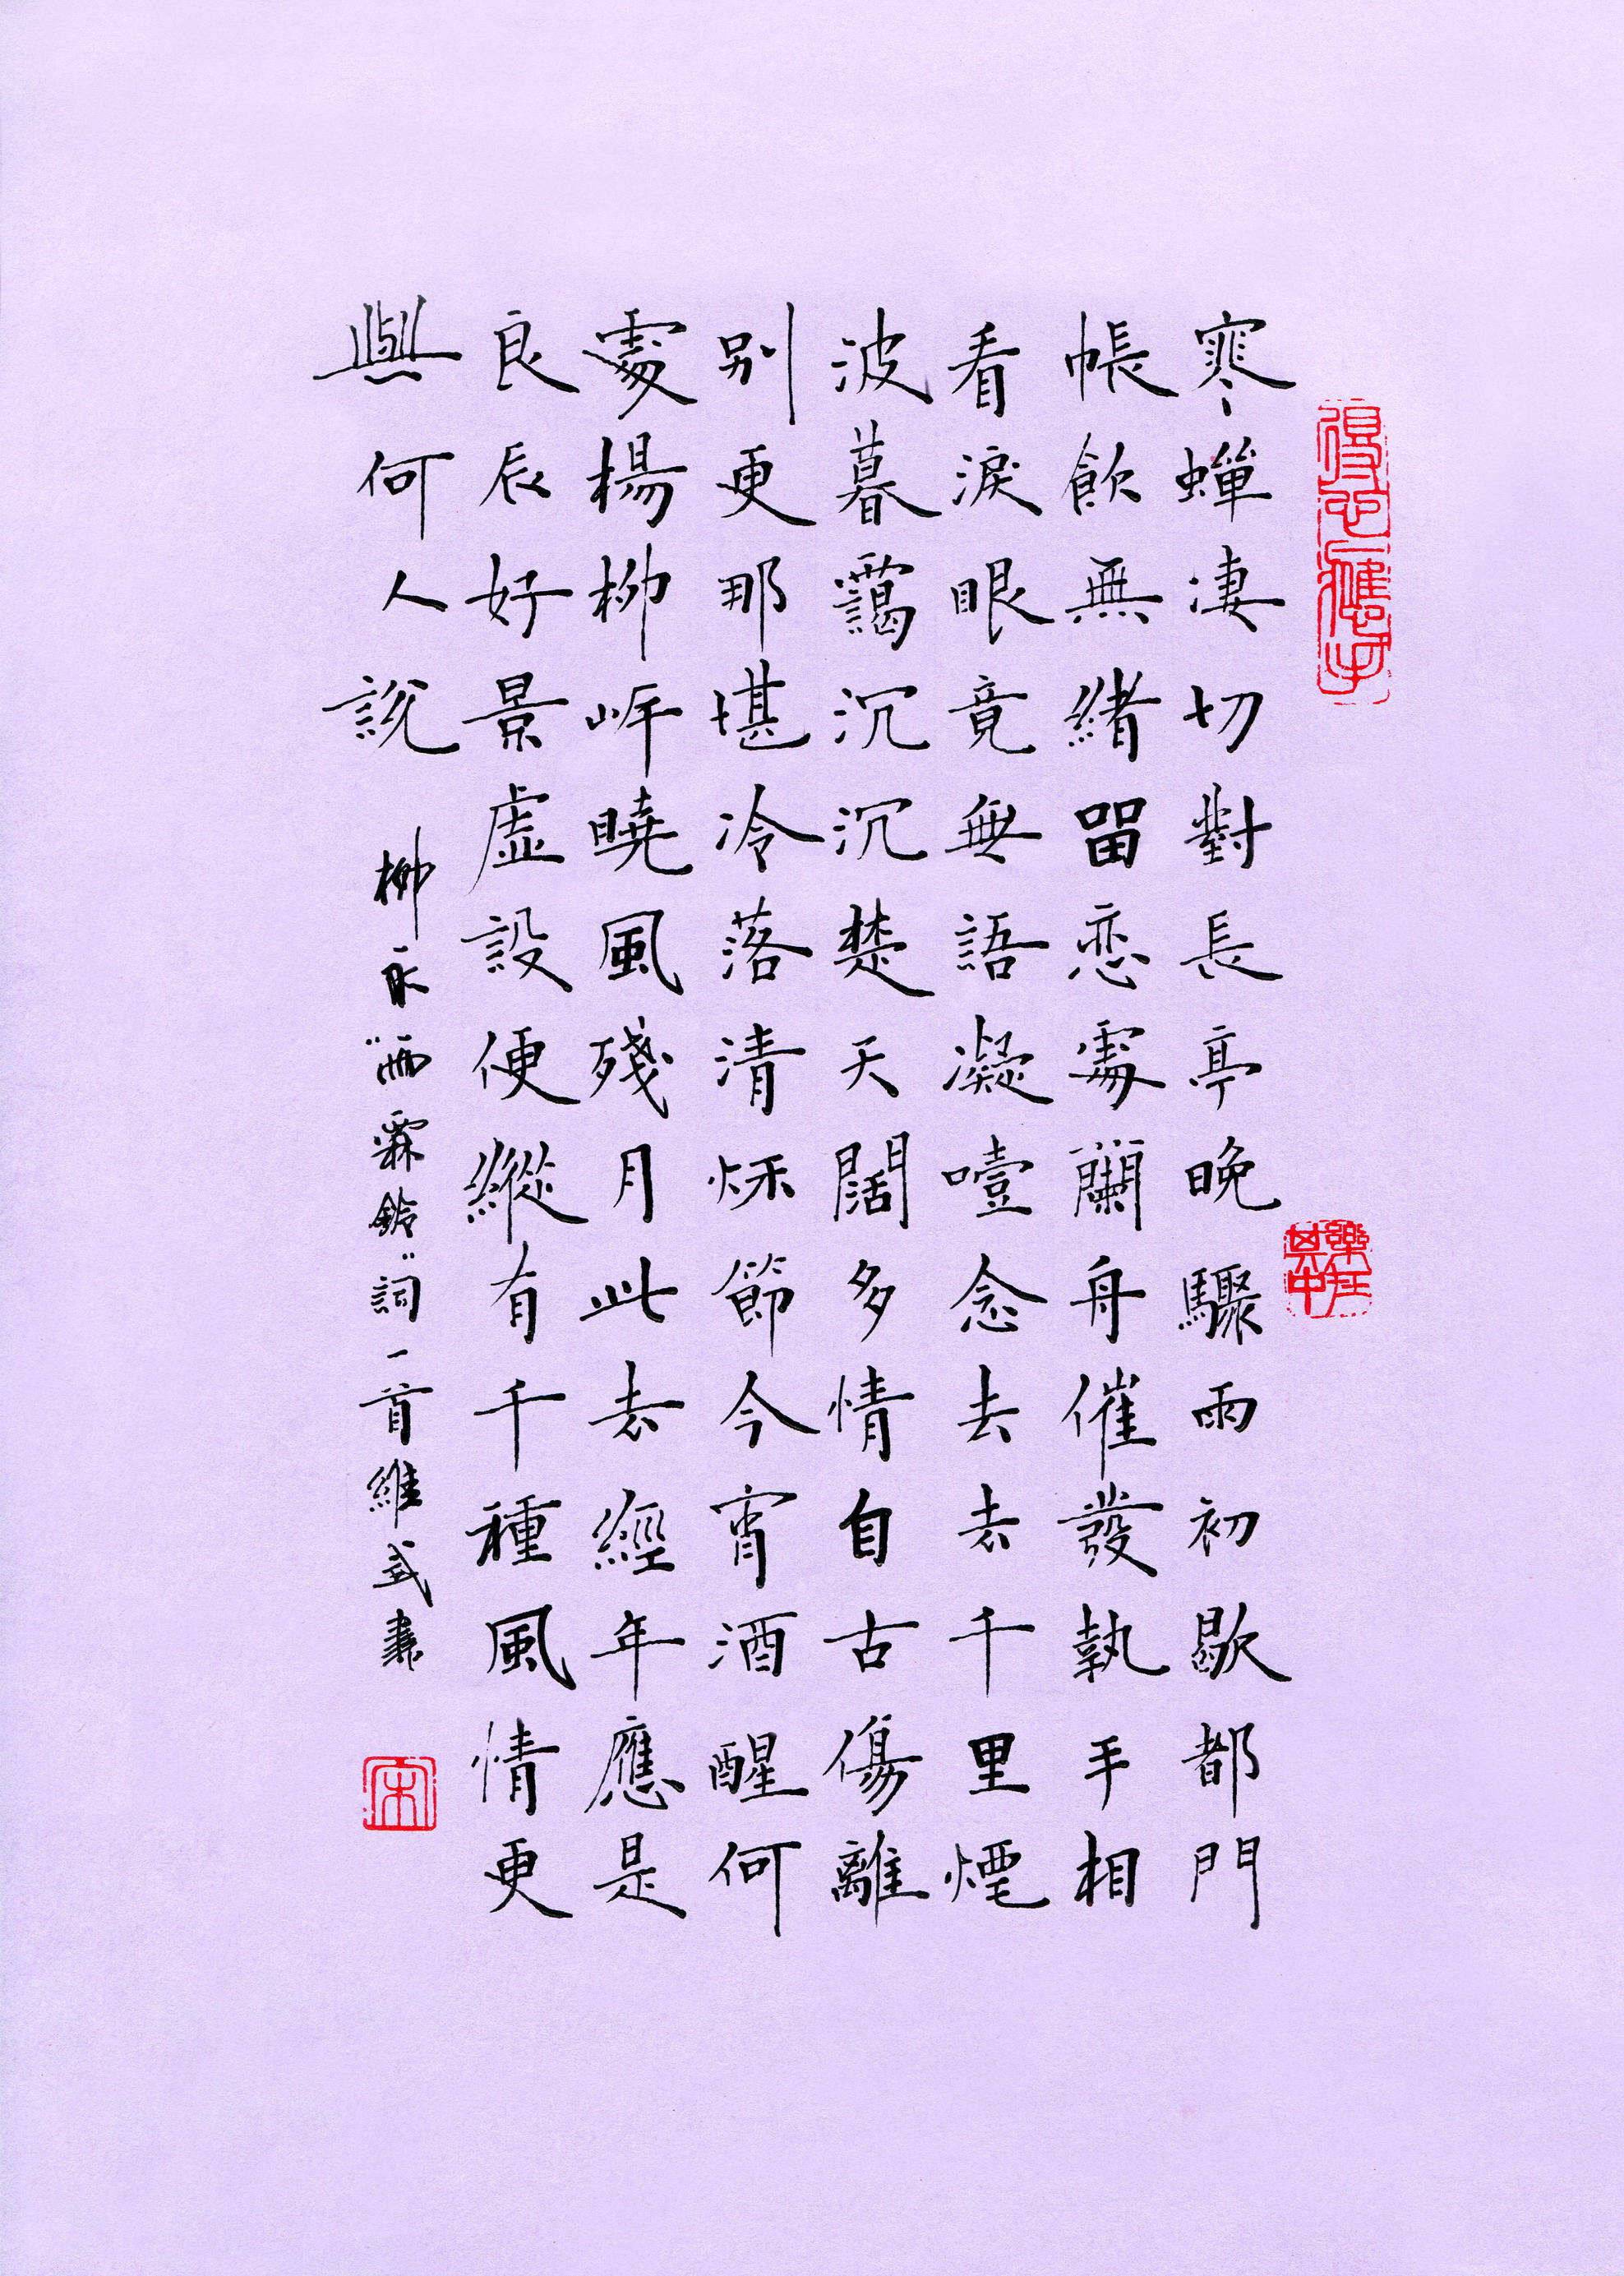 得心應手
寒蟬凄切對長亭晚驟雨初歇都門
樂在其中
帳飲無緒留恋處蘭舟催發執手相
看淚眼竟無語凝噎念去去千里煙
波暮靄沉沉楚天闊多情自古傷離
別更那堪冷落清秋節今宵酒醒何
處楊柳岸曉風殘月此去經年應是
良辰好景虛設便縱有千種風情更
與何人說
柳永"雨霖鈴"詞一首維書
宋